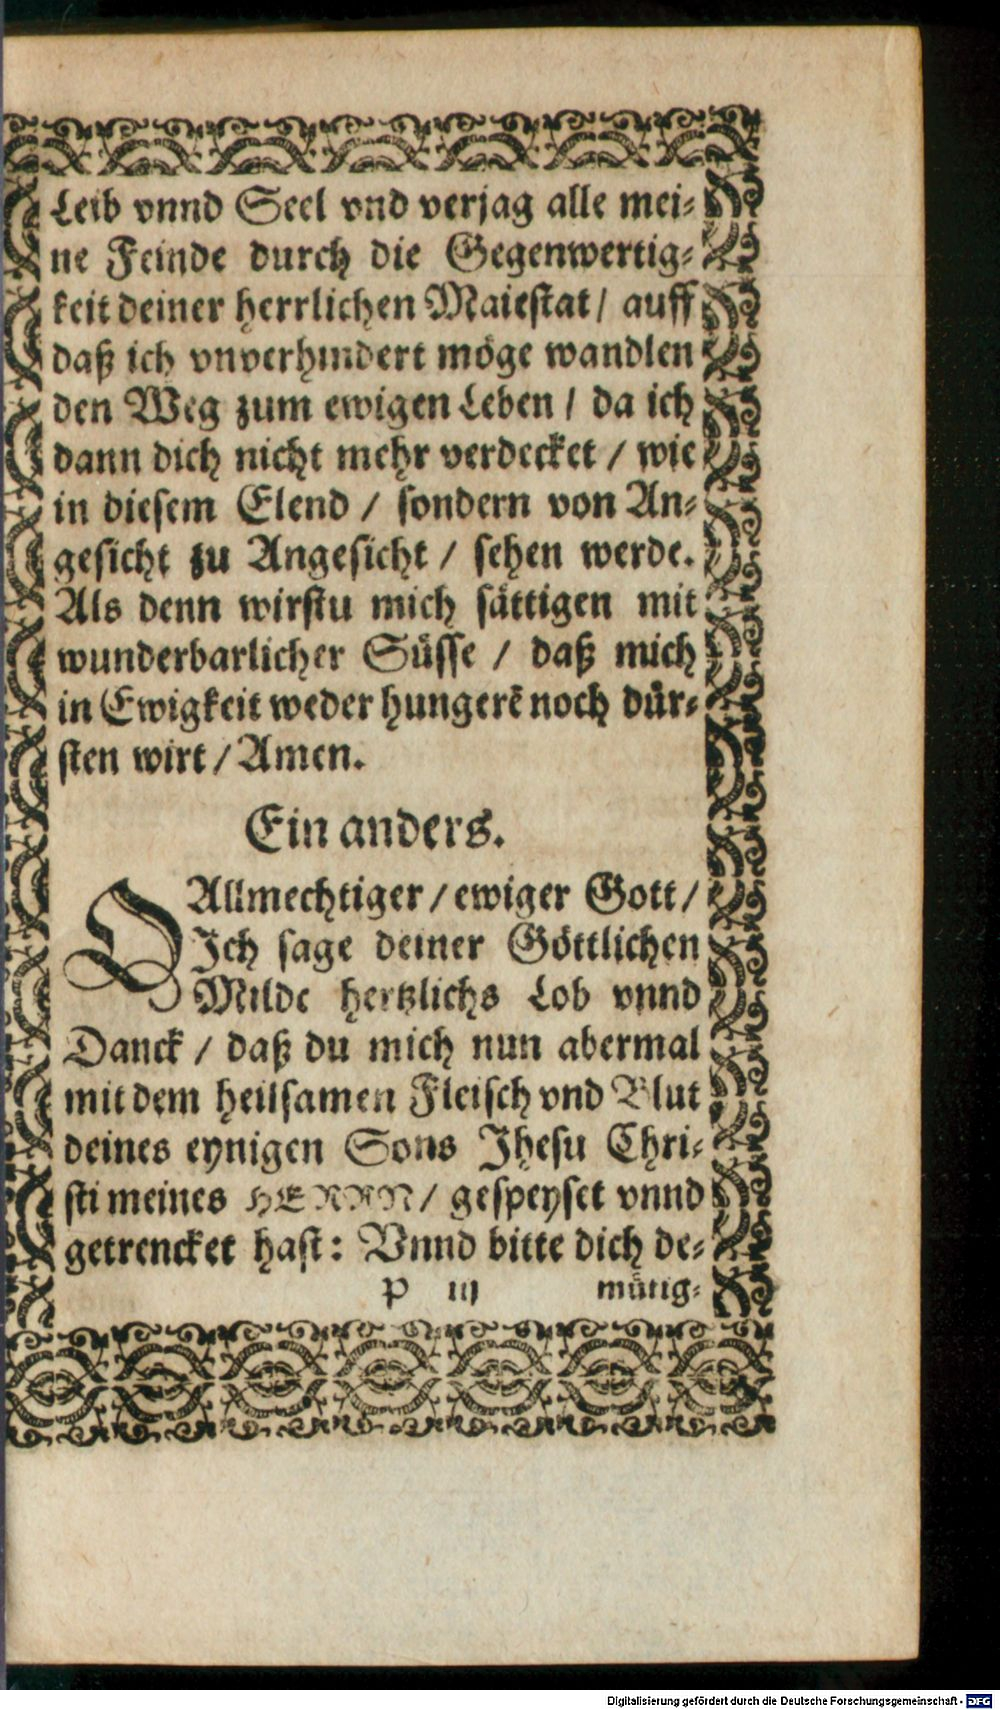 Leib vnnd Seel vnd verjag alle mei⸗
ne Feinde durch die Gegenwertig⸗
keit deiner herrlichen Maiestat / auff
daß ich vnverhindert möge wandlen
den Weg zum ewigen Leben / da ich
dann dich nicht mehr verdecket / wie
in diesem Elend / sondern von An⸗
gesicht zu Angesicht / sehen werde.
Als denn wirstu mich sättigen mit
wunderbarlicher Süsse / daß mich
in Ewigkeit weder hungerẽ noch dür⸗
sten wirt / Amen.
Ein anders.
O Allmechtiger / ewiger Gott /
Ich sage deiner Göttlichen
Milde hertzlichs Lob vnnd
Danck / daß du mich nun abermal
mit dem heilsamen Fleisch vnd Blut
deines eynigen Sons Jhesu Chri⸗
sti meines HERRN / gespeyset vnnd
getrencket hast: Vnnd bitte dich de⸗
p iij mütig⸗
Digitalisierung gefördert durch die Deutsche Forschungsgemeinschaft - DFG